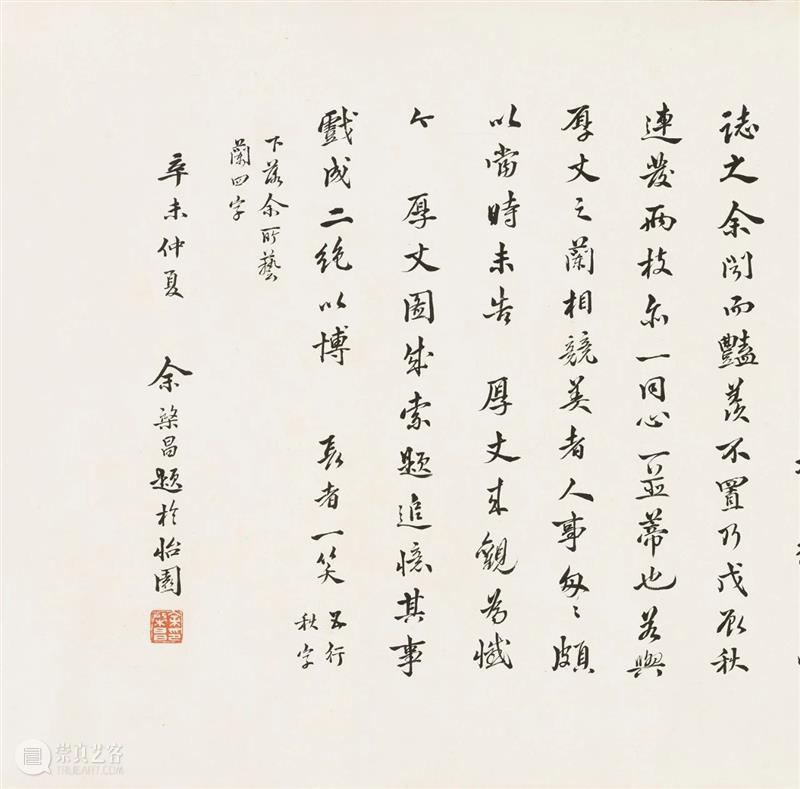 誌之余聞而豔羨不置乃戊辰秋
連發兩枝亦一同心一並蒂也若與
厚丈之蘭相競美者人事匆々頗
以當時未告 厚丈來觀為憾
今 厚丈圖成索題追憶其事
戲成二絕以博 長者一笑
五行
秋字
下落余所藝
蘭四字
辛未仲夏 余棨昌題於怡園
余印棨昌
崇真艺客
TRUEART.COM